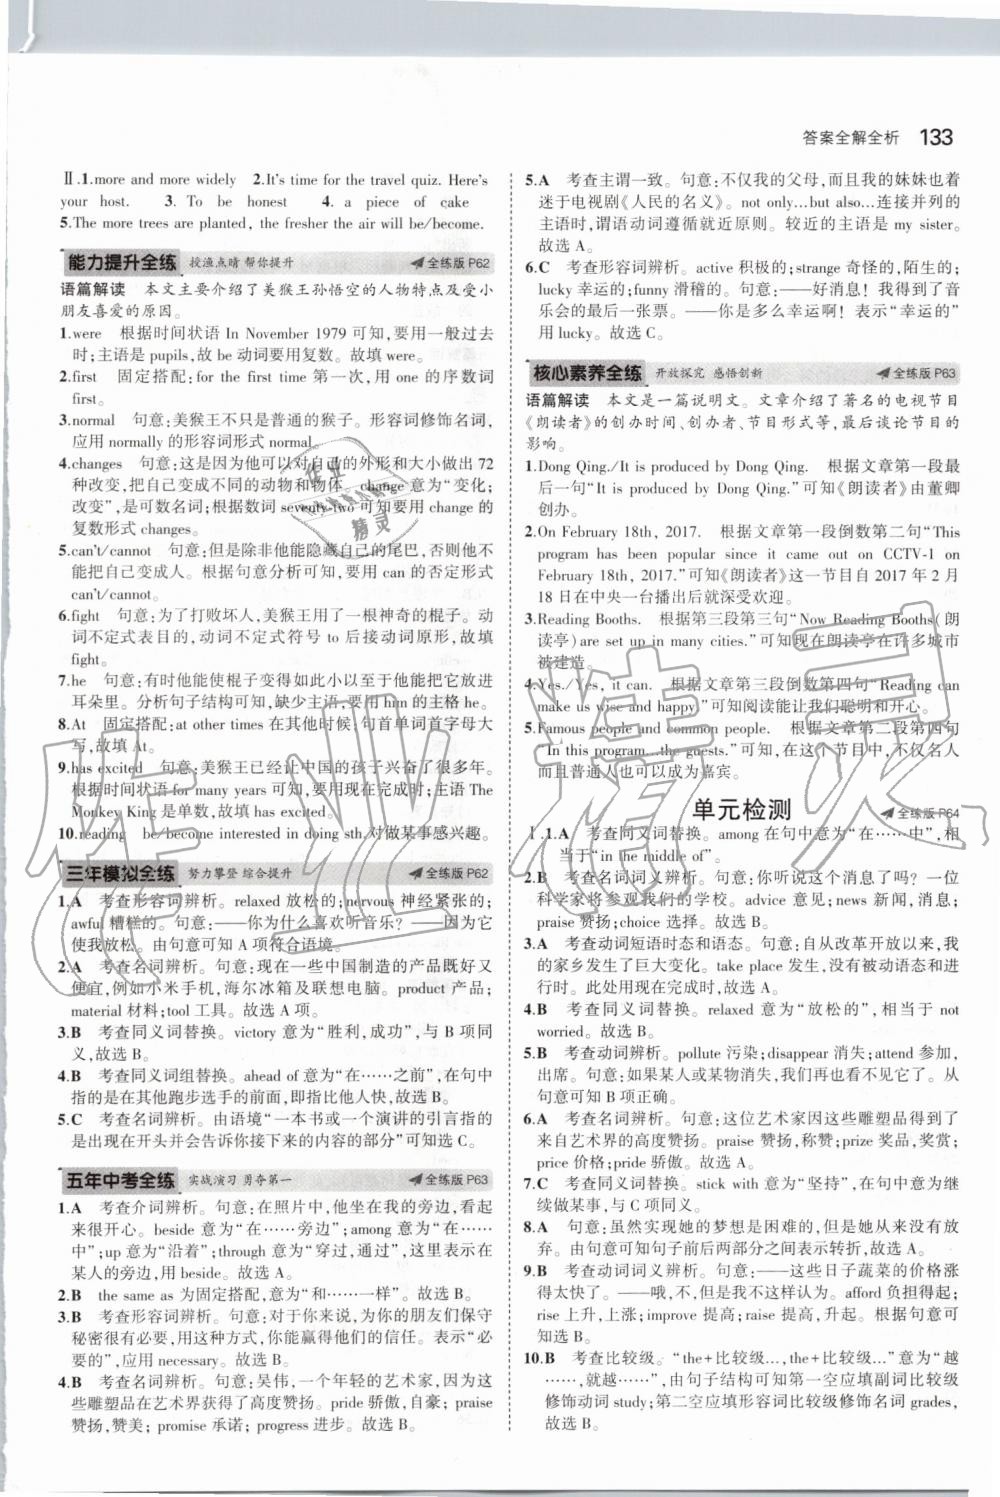 答案全解全析 133
Ⅱ.1.more and more widely 2.It's time for the travel quiz. Here's
your host. 3. To be honest 4. a piece of cake
5.The more trees are planted, the fresher the air will be/become.
能力提升全练 授渔点睛 帮你提升 全练版 P62
语篇解读 本文主要介绍了美猴王孙悟空的人物特点及受小
朋友喜爱的原因。
1.were 根据时间状语 In November 1979 可知,要用一般过去
时;主语是 pupils,故 be 动词要用复数。故填 were。
2.first 固定搭配:for the first time 第一次,用 one 的序数词
first。
3.normal 句意:美猴王不只是普通的猴子。形容词修饰名词,
应用 normally 的形容词形式 normal。
4.changes 句意:这是因为他可以对自己的外形和大小做出 72
种改变,把自己变成不同的动物和物体。change 意为“变化;
改变”,是可数名词;根据数词 seventy-two 可知要用 change 的
复数形式 changes。
5.can't/cannot 句意:但是除非他能隐藏自己的尾巴,否则他不
能把自己变成人。根据句意分析可知,要用 can 的否定形式
can't/cannot。
6.fight 句意:为了打败坏人,美猴王用了一根神奇的棍子。动
词不定式表目的,动词不定式符号 to 后接动词原形,故填
fight。
7.he 句意:有时他能使棍子变得如此小以至于他能把它放进
耳朵里。分析句子结构可知,缺少主语,要用 him 的主格 he。
8.At 固定搭配:at other times 在其他时候,句首单词首字母大
写,故填 At。
9.has excited 句意:美猴王已经让中国的孩子兴奋了很多年。
根据时间状语 for many years 可知,要用现在完成时;主语 The
Monkey King 是单数,故填 has excited。
10.reading be/become interested in doing sth.对做某事感兴趣。
三年模拟全练 努力攀登 综合提升 全练版 P62
1.A 考查形容词辨析。relaxed 放松的;nervous 神经紧张的;
awful 糟糕的。句意:——你为什么喜欢听音乐? ——因为它
使我放松。由句意可知 A 项符合语境。
2.A 考查名词辨析。句意:现在一些中国制造的产品既好又
便宜,例如小米手机,海尔冰箱及联想电脑。product 产品;
material 材料;tool 工具。故选 A 项。
3.B 考查同义词替换。victory 意为“胜利,成功”,与 B 项同
义,故选 B。
4.B 考查同义词组替换。ahead of 意为“在……之前”,在句中
指的是在其他跑步选手的前面,即指比他人快,故选 B。
5.C 考查名词辨析。由语境“一本书或一个演讲的引言指的
是出现在开头并会告诉你接下来的内容的部分”可知选 C。
五年中考全练 实战演习 勇夺第一 全练版 P63
1.A 考查介词辨析。句意:在照片中,他坐在我的旁边,看起
来很开心。beside 意为“在……旁边”;among 意为“在……
中”;up 意为“沿着”;through 意为“穿过,通过”,这里表示在
某人的旁边,用 beside。故选 A。
2.B the same as 为固定搭配,意为“和……一样”。故选 B。
3.B 考查形容词辨析。句意:对于你来说,为你的朋友们保守
秘密很有必要,用这种方式,你能赢得他们的信任。表示“必
要的”,应用 necessary。故选 B。
4.B 考查名词辨析。句意:吴伟,一个年轻的艺术家,因为这
些雕塑在艺术界获得了高度赞扬。pride 骄傲,自豪; praise
赞扬,赞美; promise 承诺; progress 进步。故选 B。
5.A 考查主谓一致。句意:不仅我的父母,而且我的妹妹也着
迷于电视剧《人民的名义》。not only...but also...连接并列的
主语时,谓语动词遵循就近原则。较近的主语是 my sister。
故选 A。
6.C 考查形容词辨析。active 积极的;strange 奇怪的,陌生的;
lucky 幸运的;funny 滑稽的。句意:——好消息! 我得到了音
乐会的最后一张票。——你是多么幸运啊! 表示“幸运的”
用 lucky。故选 C。
核心素养全练 开放探究 感悟创新 全练版 P63
语篇解读 本文是一篇说明文。文章介绍了著名的电视节目
《朗读者》的创办时间、创办者、节目形式等,最后谈论节目的
影响。
1.Dong Qing./It is produced by Dong Qing. 根据文章第一段最
后一句“It is produced by Dong Qing.”可知《朗读者》由董卿
创办。
2.On February 18th, 2017. 根据文章第一段倒数第二句“This
program has been popular since it came out on CCTV-1 on
February 18th, 2017.”可知《朗读者》这一节目自 2017 年 2 月
18 日在中央一台播出后就深受欢迎。
3.Reading Booths. 根据第三段第三句“Now Reading Booths(朗
读亭) are set up in many cities.”可知现在朗读亭在许多城市
被建造。
4.Yes./Yes, it can. 根据文章第三段倒数第四句“Reading can
make us wise and happy.”可知阅读能让我们聪明和开心。
5.Famous people and common people. 根据文章第二段第四句
“In this program...the guests.”可知,在这个节目中,不仅名人
而且普通人也可以成为嘉宾。
单元检测 全练版 P64
Ⅰ.1.A 考查同义词替换。among 在句中意为“在……中”,相
当于“in the middle of”。
2.B 考查名词词义辨析。句意:你听说这个消息了吗? 一位
科学家将参观我们的学校。advice 意见;news 新闻,消息;
praise 赞扬;choice 选择。故选 B。
3.A 考查动词短语时态和语态。句意:自从改革开放以来,我
的家乡发生了巨大变化。take place 发生,没有被动语态和进
行时。此处用现在完成时,故选 A。
4.B 考查同义词替换。relaxed 意为“放松的”,相当于 not
worried。故选 B。
5.B 考查动词辨析。pollute 污染;disappear 消失;attend 参加,
出席。句意:如果某人或某物消失,我们将不能再看见他/它。
分析句意可知 B 项正确。
6.A 考查名词辨析。句意:这位艺术家因这些雕塑品得到了
来自艺术界的高度赞扬。praise 赞扬,称赞;prize 奖品,奖赏;
price 价格;pride 骄傲。故选 A。
7.C 考查同义词替换。stick with 意为“坚持”,在此处指继续
做某事,与 C 项同义。
8.A 句意:虽然实现她的梦想是困难的,但是她从来没有放
弃。由句意可知句子前后两部分之间表示转折,故选 A。
9.B 考查动词词义辨析。句意:——这些日子蔬菜的价格涨
得太快了。——哦,不,但是我不这样认为。afford 负担得起;
rise 上升,上涨;improve 提高;raise 提高,升起。根据句意可
知选 B。
10.B 考查比较级。“the+比较级...,the+比较级...”意为“越
……,就越……”,由句子结构可知第一空应填副词比较级
修饰动词 study;第二空应填形容词比较级修饰名词 grades,
故选 B。
作业精灵